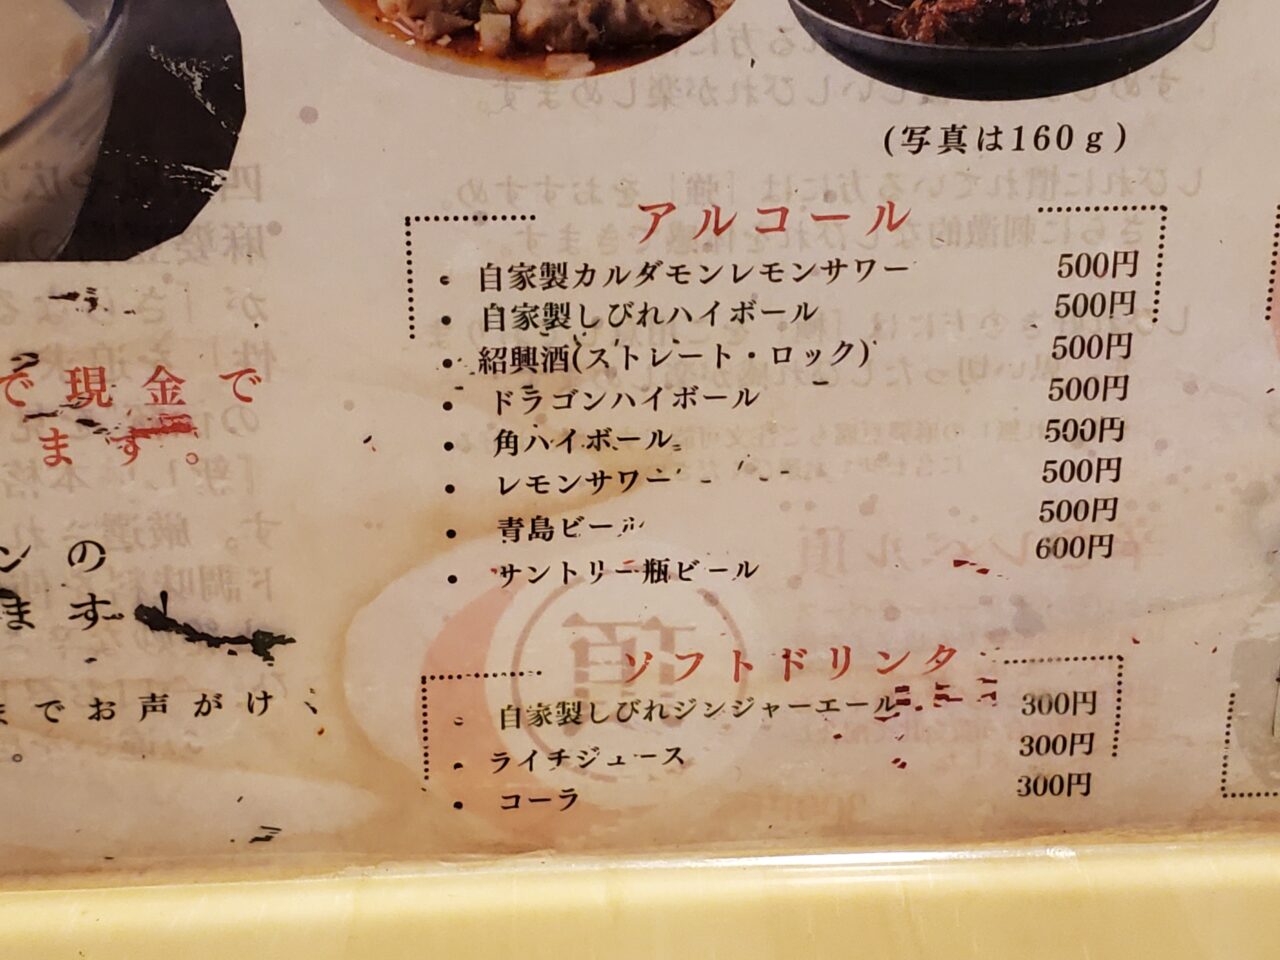 (写真は160ｇ)
アルコール
・自家製カルダモンレモンサワー 500円
・自家製しびれハイボール 500円
・紹興酒(ストレート・ロック) 500円
・ドラゴンハイボール 500円
・角ハイボール 500円
・レモンサワー 500円
・青島ビール 500円
・サントリー瓶ビール 600円
ソフトドリンク
・自家製しびれジンジャーエール 300円
・ライチジュース 300円
・コーラ 300円
で現金で
ます。
ンの
ます
までお声がけ、
。